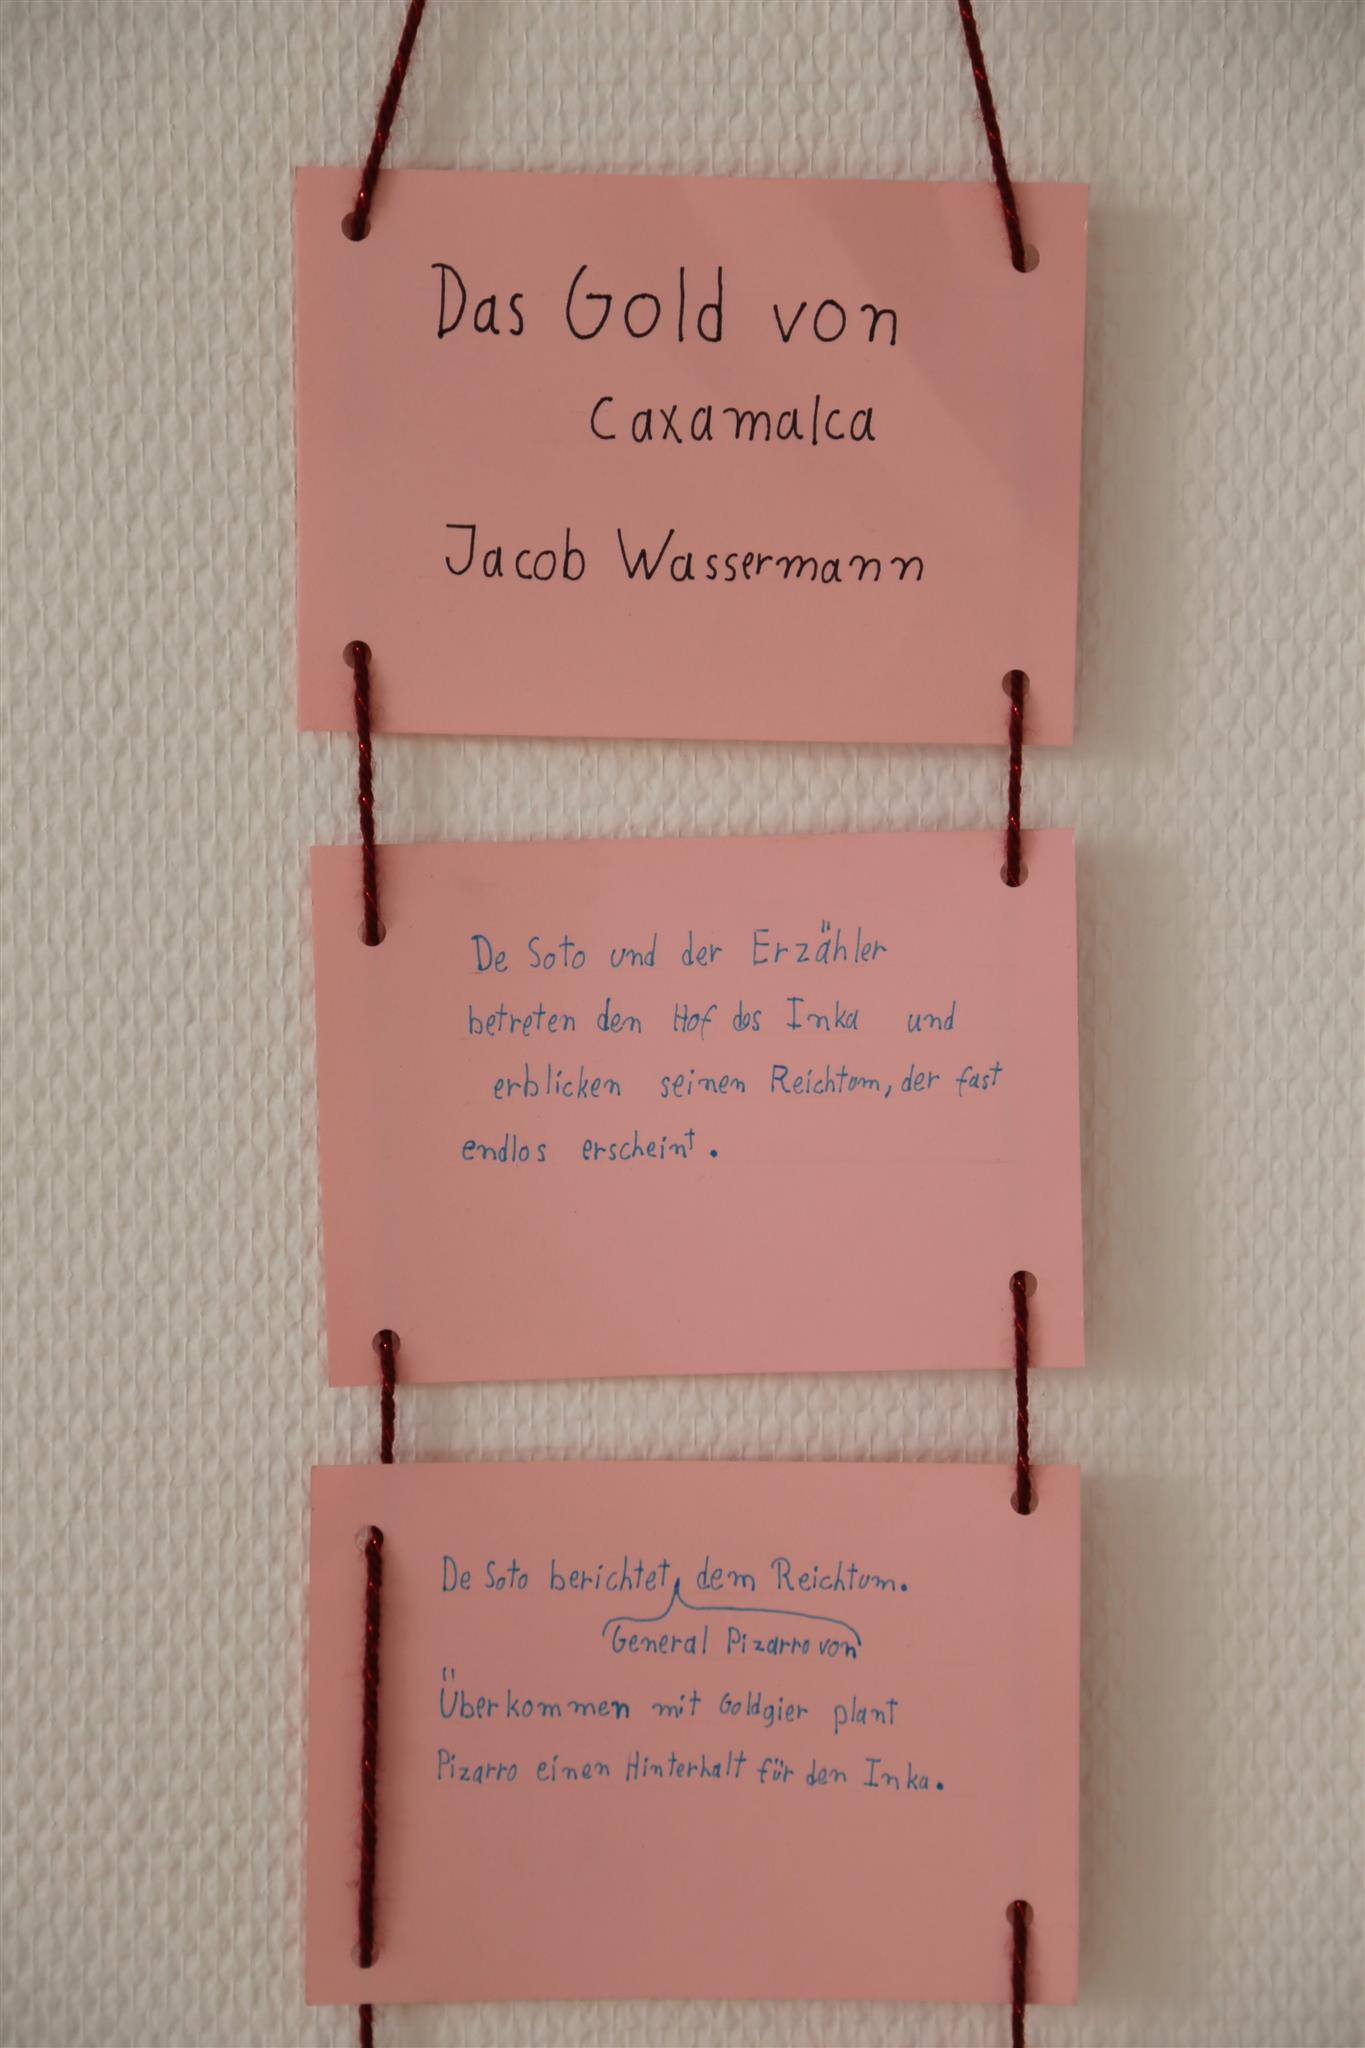 Das Gold von
Caxamalca
Jacob Wassermann
De Soto und der Erzähler
betreten den Hof des Inka und
erblicken seinen Reichtum, der fast
endlos erscheint.
De Soto berichtet dem Reichtum.
General Pizarro von
Überkommen mit Goldgier plant
Pizarro einen Hinterhalt für den Inka.